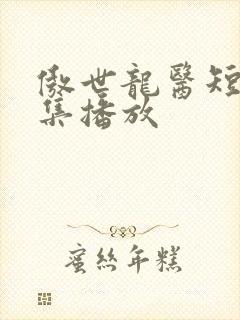 傲世龍醫短
集播放
蜜絲年糕